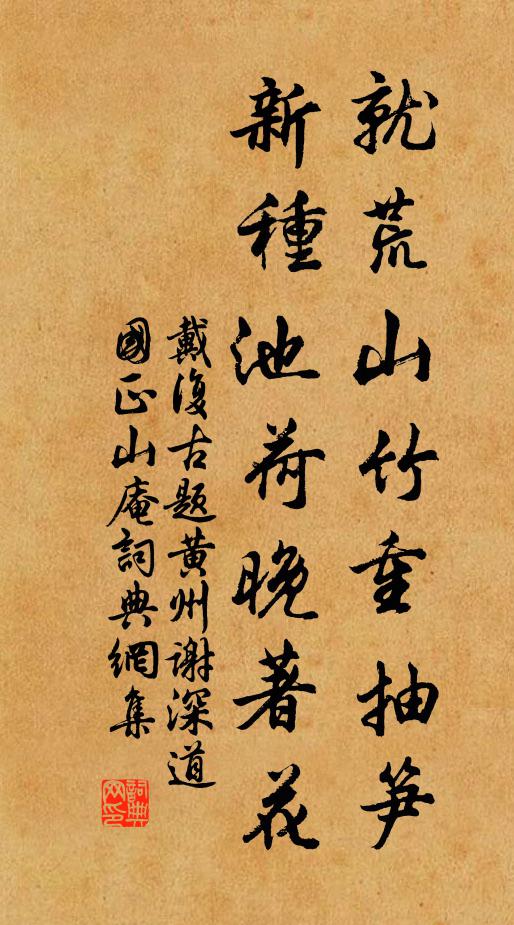 就荒山竹重抽笋
新種池荷晚著花
戴復古題黃州谢深道
國正山庵詞典網集
詞典
网印